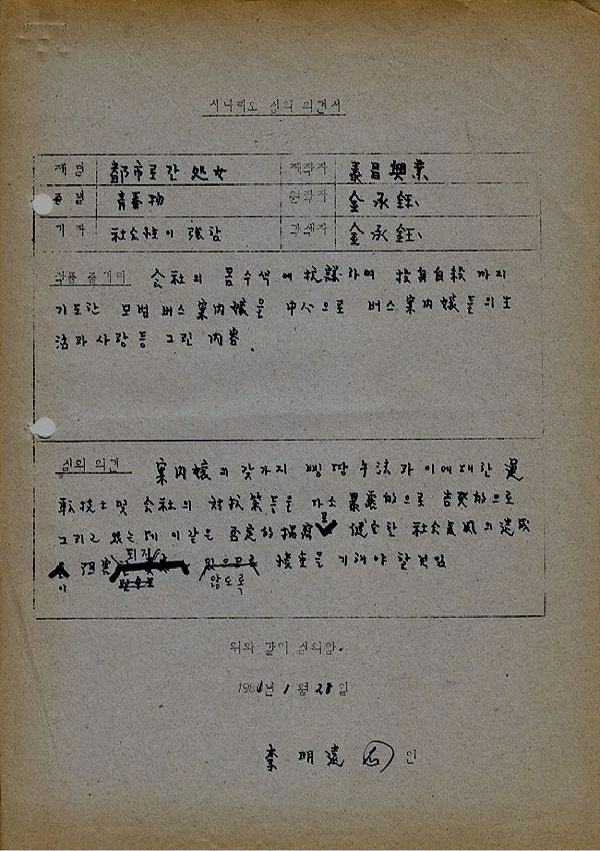 시나리오 심의 의견서
제명 都市로 간 処女 제작자 泰昌興業
종별 靑春物 원작자 金承鈺
기타 社会性이 强함 각색자 金承鈺
작품 줄거리 会社의 몸수색에 抗議하여 投身自殺까지
기도한 모범 버스案内嬢을 中心으로 버스案内嬢들의 生
活과 사랑등 그린 内容.
심의 의견 案内嬢의 갖가지 삥땅手法과 이에 대한 運
転技士 및 会社의 対抗策等을 다소 暴露的으로 告発的으로
그리고 있는데 이같은 否定的 描写로 健全한 社会気風의 造成
이 퇴치 않도록 検討를 기해야 할것임
위와 같이 심의함.
1981년 1월 28일
李明遠 인